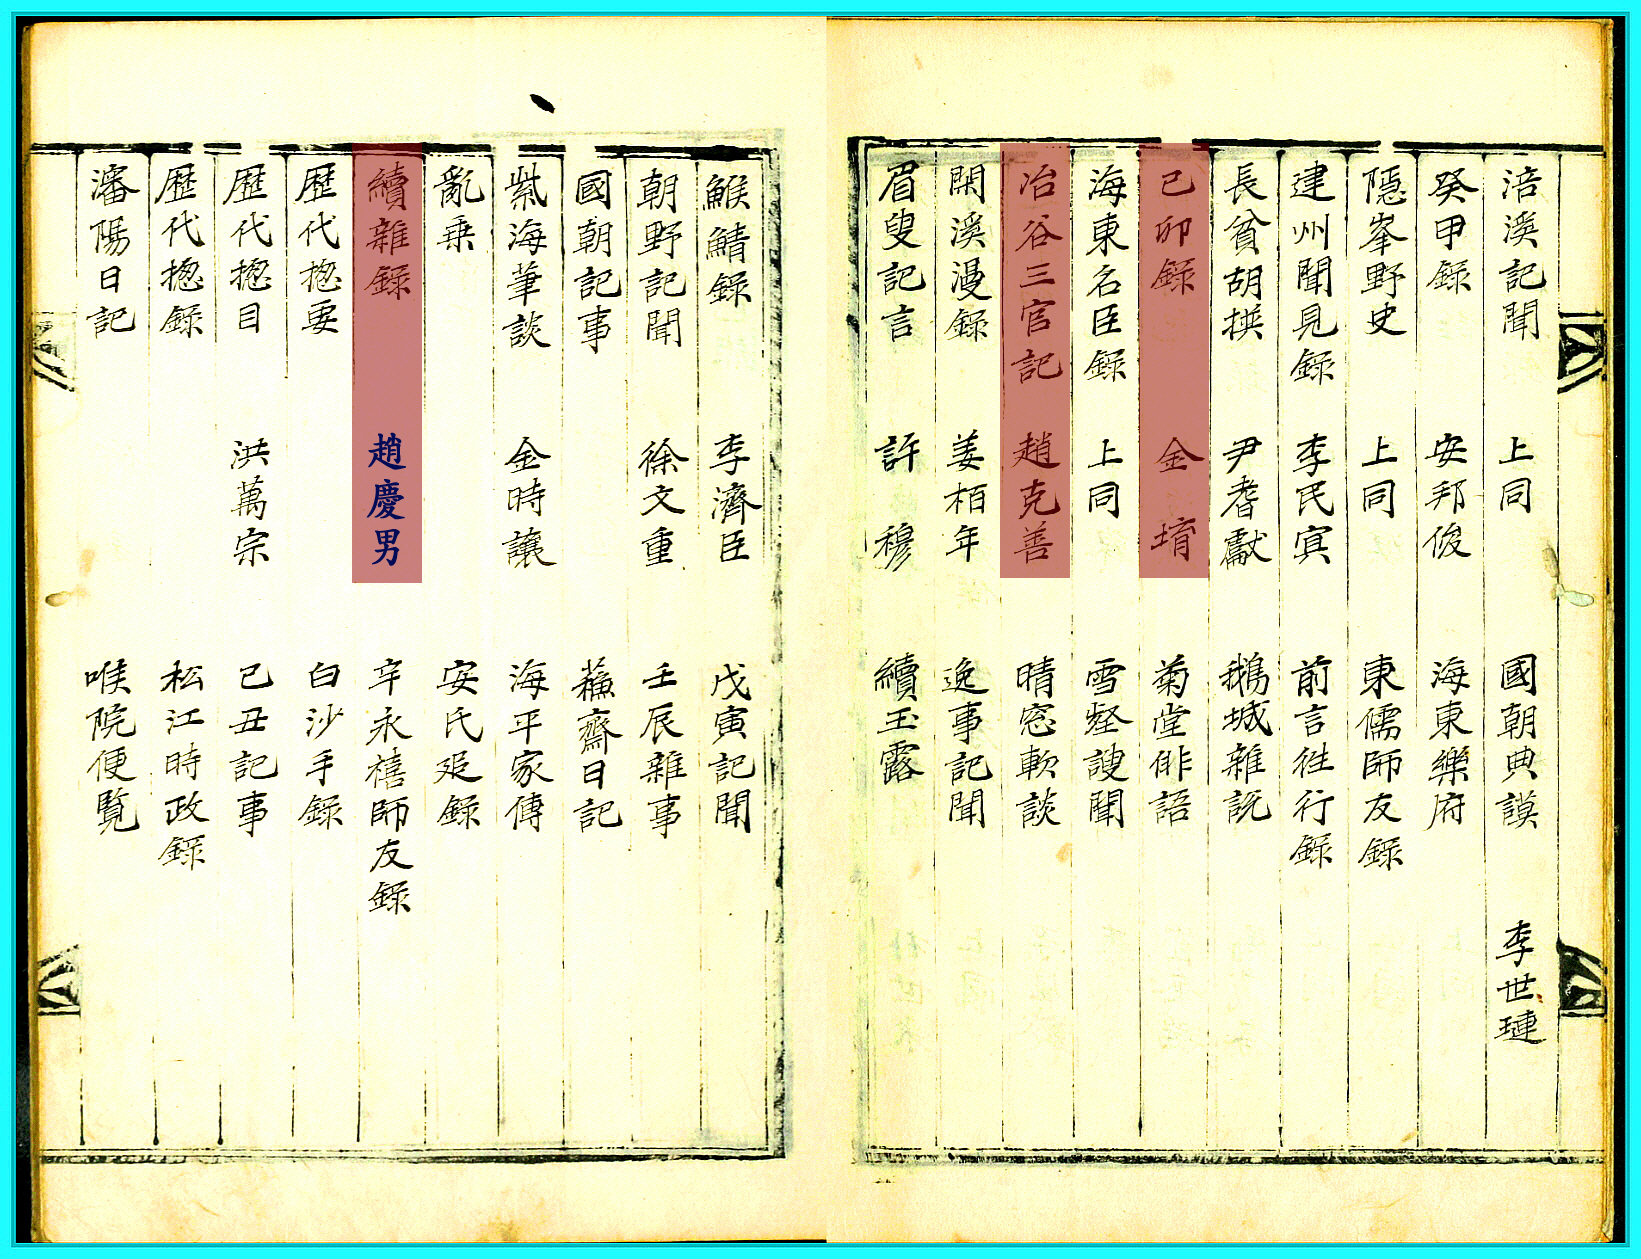 涪溪記聞 上同 國朝典謨 李世璉
癸甲錄 安邦俊 海東樂府
隱峯野史 上同 東儒師友錄
建州聞見錄 李民寅 前言徃行錄
長貧胡撰 尹耆獻 鵝城雜說
己卯錄 金堉 菊堂俳語
海東名臣錄 上同 雪壑謏聞
冶谷三官記 趙克善 晴窓軟談
閑溪漫錄 姜栢年 逸事記聞
眉叟記言 許穆 續玉露
鯸鯖錄 李濟臣 戊寅記聞
朝野記聞 徐文重 壬辰雜事
國朝記事 蘓齋日記
紫海筆談 金時讓 海平家傳
亂乗 安氏㢟錄
續雜錄 趙慶男 辛永禧師友錄
歷代捴要 白沙手錄
歷代捴目 洪萬宗 己丑記事
歷代捴錄 松江時政錄
瀋陽日記 喉院便覽